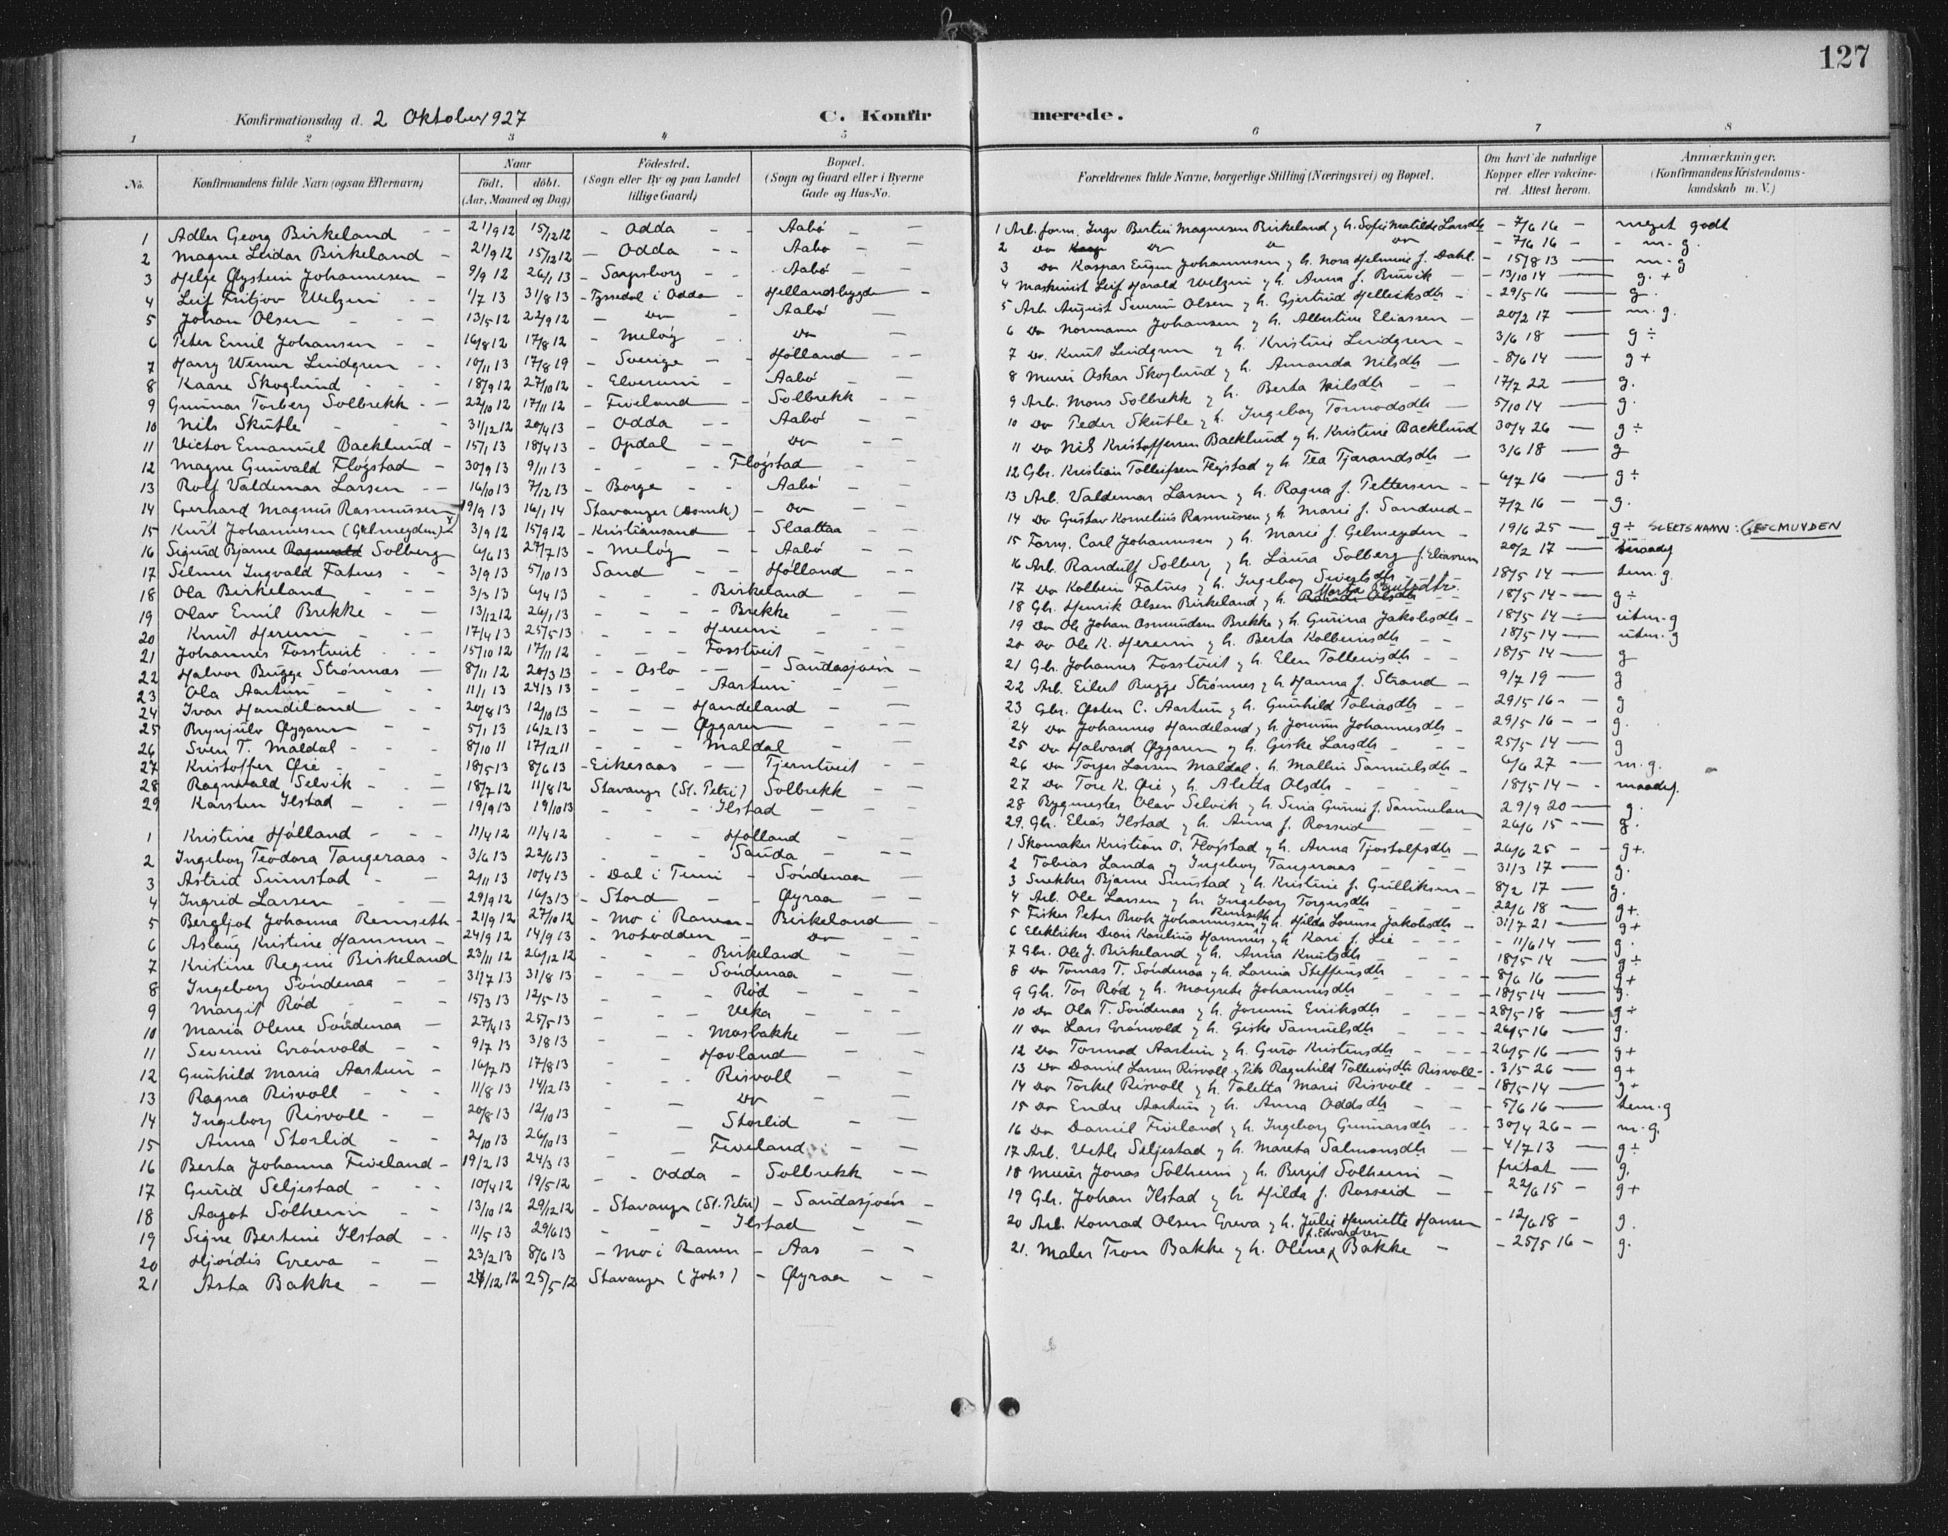 127
Konfirmationsdag d. 2 Oktober 1927
C. Konfirmerede.
1 2 3 4 5 6 7 8
No.
Konfirmandens fulde Navn (ogsaa Efternavn)
Naar
födt. döbt.
(Aar, Maaned og Dag)
Födested.
(Sogn eller By og paa Landet
tillige Gaard)
Bopæl.
(Sogn og Gaard eller i Byerne
Gade og Hus-No.
Forældrenes fulde Navne, borgerlige Stilling (Næringsvei) og Bopæl.
Om havt de naturlige
Kopper eller vakcine-
ret. Attest herom.
Anmærkninger.
(Konfirmandens Kristendoms-
kundskab m. V.)
1 Adler Georg Birkeland - - 21/9 12 15/12 12 - Odda - - Aabø - -
2 Magne Leidar Birkeland - 21/9 12 15/12 12 - Odda - - Aabo - -
3 Helge Øystein Johannesen - 9/9 12 26/1 13 - Sarpsborg - - Aabø - -
4 Leif Fritjov Welzin - - 1/7 13 31/8 13 - Tyssedal i Odda - Hellandsbygden -
5 Johan Olsen - - - 13/5 12 22/9 12 - Do - Aabø -
6 Peter Emil Johansen - - 16/8 12 17/8 12 - Meløy - Do
7 Harry Werner Lindgren - - 10/11 13 17/8 19 - Sverige - - Hølland - -
8 Kaare Skoglund - - - 18/9 12 27/10 12 - Elverum - Aabø - -
9 Gunnar Torberg Solbrekk - - 22/10 12 17/11 12 - Fiveland - Solbrekk - -
10 Nils Skutle - - - 31/12 12 20/4 13 - Odda - Aabø -
11 Victor Emanuel Backlund - 15/1 13 18/4 13 - Opdal - - Do - -
12 Magne Gunvald Fløgstad - 30/9 13 9/11 13 - - - Fløgstad - -
13 Rolf Valdemar Larsen - - 16/10 13 7/12 13 - Borge - - Aabø - -
14 Gerhard Magnus Rasmussen 19/9 13 16/1 14 Stavanger (Domk) - Do - -
15 Knut Johannesen (Gelmeyden) 3/9 12 15/9 12 - Kristiansand - Slaattaa - -
16 Sigurd Bjarne Ragnvald Solberg 6/6 13 27/7 13 - Meløy - Aabø - -
17 Selmer Ingvald Fatnes - - 3/9 13 5/10 13 Sand - - Hølland - -
18 Ola Birkeland - - 3/3 13 6/4 13 - - - Birkeland - -
19 Olav Emil Brekke - - 13/12 12 26/1 13 - - - Brekke - -
20 Knut Hereim - - 17/4 13 25/5 13 - - - Hereim - -
21 Johannes Fosstveit - - 15/10 12 17/11 12 - - - Fosstveit - -
22 Halvor Bugge Strømnes - 8/11 12 20/3 13 - - Oslo - - - Saudasjøen -
23 Ola Aartun - - 11/1 13 24/3 13 - - - Aartun - -
24 Ivar Handeland - - 20/8 13 12/10 13 - - - Handeland - -
25 Brynjulv Øygaren - - 5/1 13 16/2 13 - - - Øygaren - -
26 Sven T. Maldal - - - 8/10 11 17/12 11 - - - Maldal - -
27 Kristoffer Øie - - - 18/5 13 8/6 13 - Eikesaas - - Tjerntveit - -
28 Ragnvald Selvik - - 18/7 12 11/8 12 Stavanger (St. Petri) Solbrekk - -
29 Karsten Ilstad - - 19/9 13 19/10 13 - - - Ilstad - -
1 Kristine Hølland - - - 11/4 12 11/4 12 - - - Hølland - -
2 Ingeborg Teodora Tangeraas - 3/6 13 22/6 13 - - - Sauda - - -
3 Astrid Sunnstad - - 2/11 13 10/4 13 - Dal i Tinn - Søndenaa - -
4 Ingrid Larsen - - - 29/9 12 16/3 13 - Stord - - Øyraa - -
5 Bergljot Johanna Remseth - 21/9 12 27/10 12 - Mo i Ranen - Birkeland - -
6 Aslaug Kristine Hammer - 24/9 12 14/9 13 - Notodden - Do - -
7 Kristine Regine Birkeland 23/11 12 26/12 12 - - - Birkeland - -
8 Ingeborg Søndenaa - - 31/7 13 31/8 13 - - - Søndenaa - -
9 Margit Rød - - - 15/3 13 12/5 13 - - - Rød - -
10 Maria Olene Søndenaa - 27/4 13 25/5 13 - - - Veka - -
11 Severine Grønvold - - 9/7 13 3/8 13 - - - Mosbakke - -
12 Gunhild Maria Aartun - - 16/7 13 17/8 13 - - - Hovland - -
13 Ragna Risvoll - - - 11/8 13 14/12 13 - - - Risvoll - -
14 Ingeborg Risvoll - - 20/8 13 12/10 13 - - - Do - -
15 Anna Storlid - - 2/10 13 26/10 13 - - - Storlid - -
16 Berta Johanna Fiveland - 19/2 13 24/3 13 - - - Fiveland - -
17 Gurid Seljestad - - - 10/4 12 19/5 12 - - Odda - Solbrekk - -
18 Aagot Solheim - - 13/10 12 29/12 12 - Stavanger (St. Petri) - Saudasjøen -
19 Signe Bertine Ilstad - - 11/5 13 29/6 13 - - - Ilstad - -
20 Hjørdis Greva - - 23/2 13 8/6 13 - Mo i Ranen - Aas - -
21 Asta Bakke - - 24/12 12 25/5 12 Stavanger (Johs) - Øyraa - -
1 Arb. form. Ingv Bertin Magnesen Birkeland g h. Sofie Matilde Larsdtr - 7/6 16 - meget godt
2 Do Do Do Do - 7/6 16 - - m. g.
3 Do Kaspar Eugen Johannesen g h. Nora Helmine f. Dahl - 15/8 13 - m. g
4 Maskinist Leif Harald Welzin g h. Anna f. Brüvik - 13/10 14 - g. +
5 Arb August Severin Olsen g h. Gjertrud Helleiksdtr - 29/5 16 - g.
6 Do Normann Johansen g h. Albertine Eliassen - 20/2 17 - m. g.
7 Do. Knut Lindgren g h. Kristine Lindgren - 3/6 18 - g ÷
8 Murer Oskar Skoglund g h. Amanda Nilsdtr - 8/6 14 - g +
9 Arb. Mons Solbrekk g h. Berta Nilsdtr - 17/7 22 - g.
10 Do Peder Skutle g h. Ingeborg Tormodsdtr - 5/10 14 - g.
11 Do Nils Kristoffersen Backlund g h. Kristine Backlund 30/4 26 - g ÷
12 Gbr. Kristian Tolleifsen Fløgstad g h. Tea Tjerandsdtr - 3/6 18 - g
13 Arb. Valdemar Larsen g h. Ragna f. Pettersen - 6/7 16 - g ÷
14 Do Gustav Kornelius Rasmussen g h. Marie f. Sandved - 7/7 16 - g.
15 Form. Carl Johannesen g h. Marie f. Gelmeyden - 19/6 25 - g ÷ SLEKTSNAMN: GEELMUYDEN
16 Arb. Randulf Solberg g h. Laura Solberg f. Eliassen 20/2 17 -
17 Do Kolbein Fatnes g h. Ingeborg Sivertsdtr 18/5 14 - tem. g.
18 Gbr. Henrik Olsen Birkeland g h. 18/5 14 - g ÷
19 Do Ole Johan Osmundsen Brekke g h. Gurina Jakobsdtr - 18/5 14 - utm. g
20 Do Ole K. Hereim g h. Berta Kolbeinsdtr - - 18/5 14 - utm. g
21 Gbr. Johannes Fosstveit g h. Elen Tolleivsdtr - - 18/5 14 - g
22 Arb. Eilert Bugge Strømnes g h Hanna f. Strand - 9/7 19 - g
23 Gbr. Østen C. Aartun g h. Gunhild Tobiasdtr - - 29/5 16 - g
24 Do Johannes Handeland g h. Jorunn Johannesdtr - 29/5 16 - - g.
25 Do Halvard Øygaren g h. Giske Larsdtr - - - 25/5 14 - g
26 Do Torger Larsen Maldal. h. Mallin Samuelsdtr - 6/6 27 - m. g.
27 Do Tore K. Øie g h. Aletta Olsdtr - - - 18/5 14 - - maadel.
28 Bygmester Olav Selvik g h. Sina Gurine f. Samuelsen 29/9 20 - g.
29. Gbr. Elias Ilstad g h. Anna f. Rosseid - - 26/6 15 - - g.
1 Skomaker Kristian O. Fløgstad g h. Anna Tjostolfsdtr - 26/6 25 - - g +.
2 Tobias Landa g Ingeborg Tangeraas - - 31/3 17 - g.
3 Snekker Bjarne Sunstad g h. Kristine f. Gulliksen - 8/2 17 - g.
4 Arb. Ole Larsen g h. Ingeborg Torgersdtr - 22/6 18 - g +.
5 Fisker Peter Brok Johannesen Remseth g h. Hilda Lovise Jakobsdtr - 31/7 21 - g +
6 Elektriker Karelius Hammer g h Kari f. Lie - - - - 11/6 14 - g.
7 Gbr. Ole J. Birkeland g h. Anna Knutsdtr - - 18/5 14 - g ÷
8 Do Tomas T. Søndenaa g h. Larina Steffensdtr - - 8/6 16 - g +
9 Gbr. Tor Rød g h. Margrete Johannesdtr - - - 18/5 14 - g.
10 Do Ola T. Søndenaa g h. Jorunn Eiriksdtr - - 28/5 18 - g ÷
11 Do Lars Grønvold g h. Giske Samuelsdtr - - - 26/5 16 - g.
12 Do Tormod Aartun g h. Guro Kristensdtr - - - 26/5 16 - g +
13 Do Daniel Larsen Risvoll g Pike Ragnhild Tolleivsdtr Risvoll - - 3/5 26 - g +
14 Do Torkel Risvoll g h. Taletta Marie Risvoll - - 18/5 14 - g +
15 Do Endre Aartun g h. Anna Oddsdtr - - - 5/6 16 - tem. g
16 Do Daniel Fiveland g h. Ingeborg Gunnarsdtr - - 30/4 26 - - m. g.
17 Arb. Vetle Seljestad g h. Mareta Salmonsdtr - - 4/7 13 - g ÷
18 Murer Jonas Solheim g h. Bergit Solheim - fritat - g.
19 Gbr. Johan Ilstad g h. Hilda f. Rosseid - - 22/6 15 - g +
20 Arb. Konrad Olsen Greva g h. Julie Henriette Hansen - 12/6 18 - g.
f. Edvardsen
21. Maler Tron Bakke g h. Oline Bakke - - 25/5 16 - g.